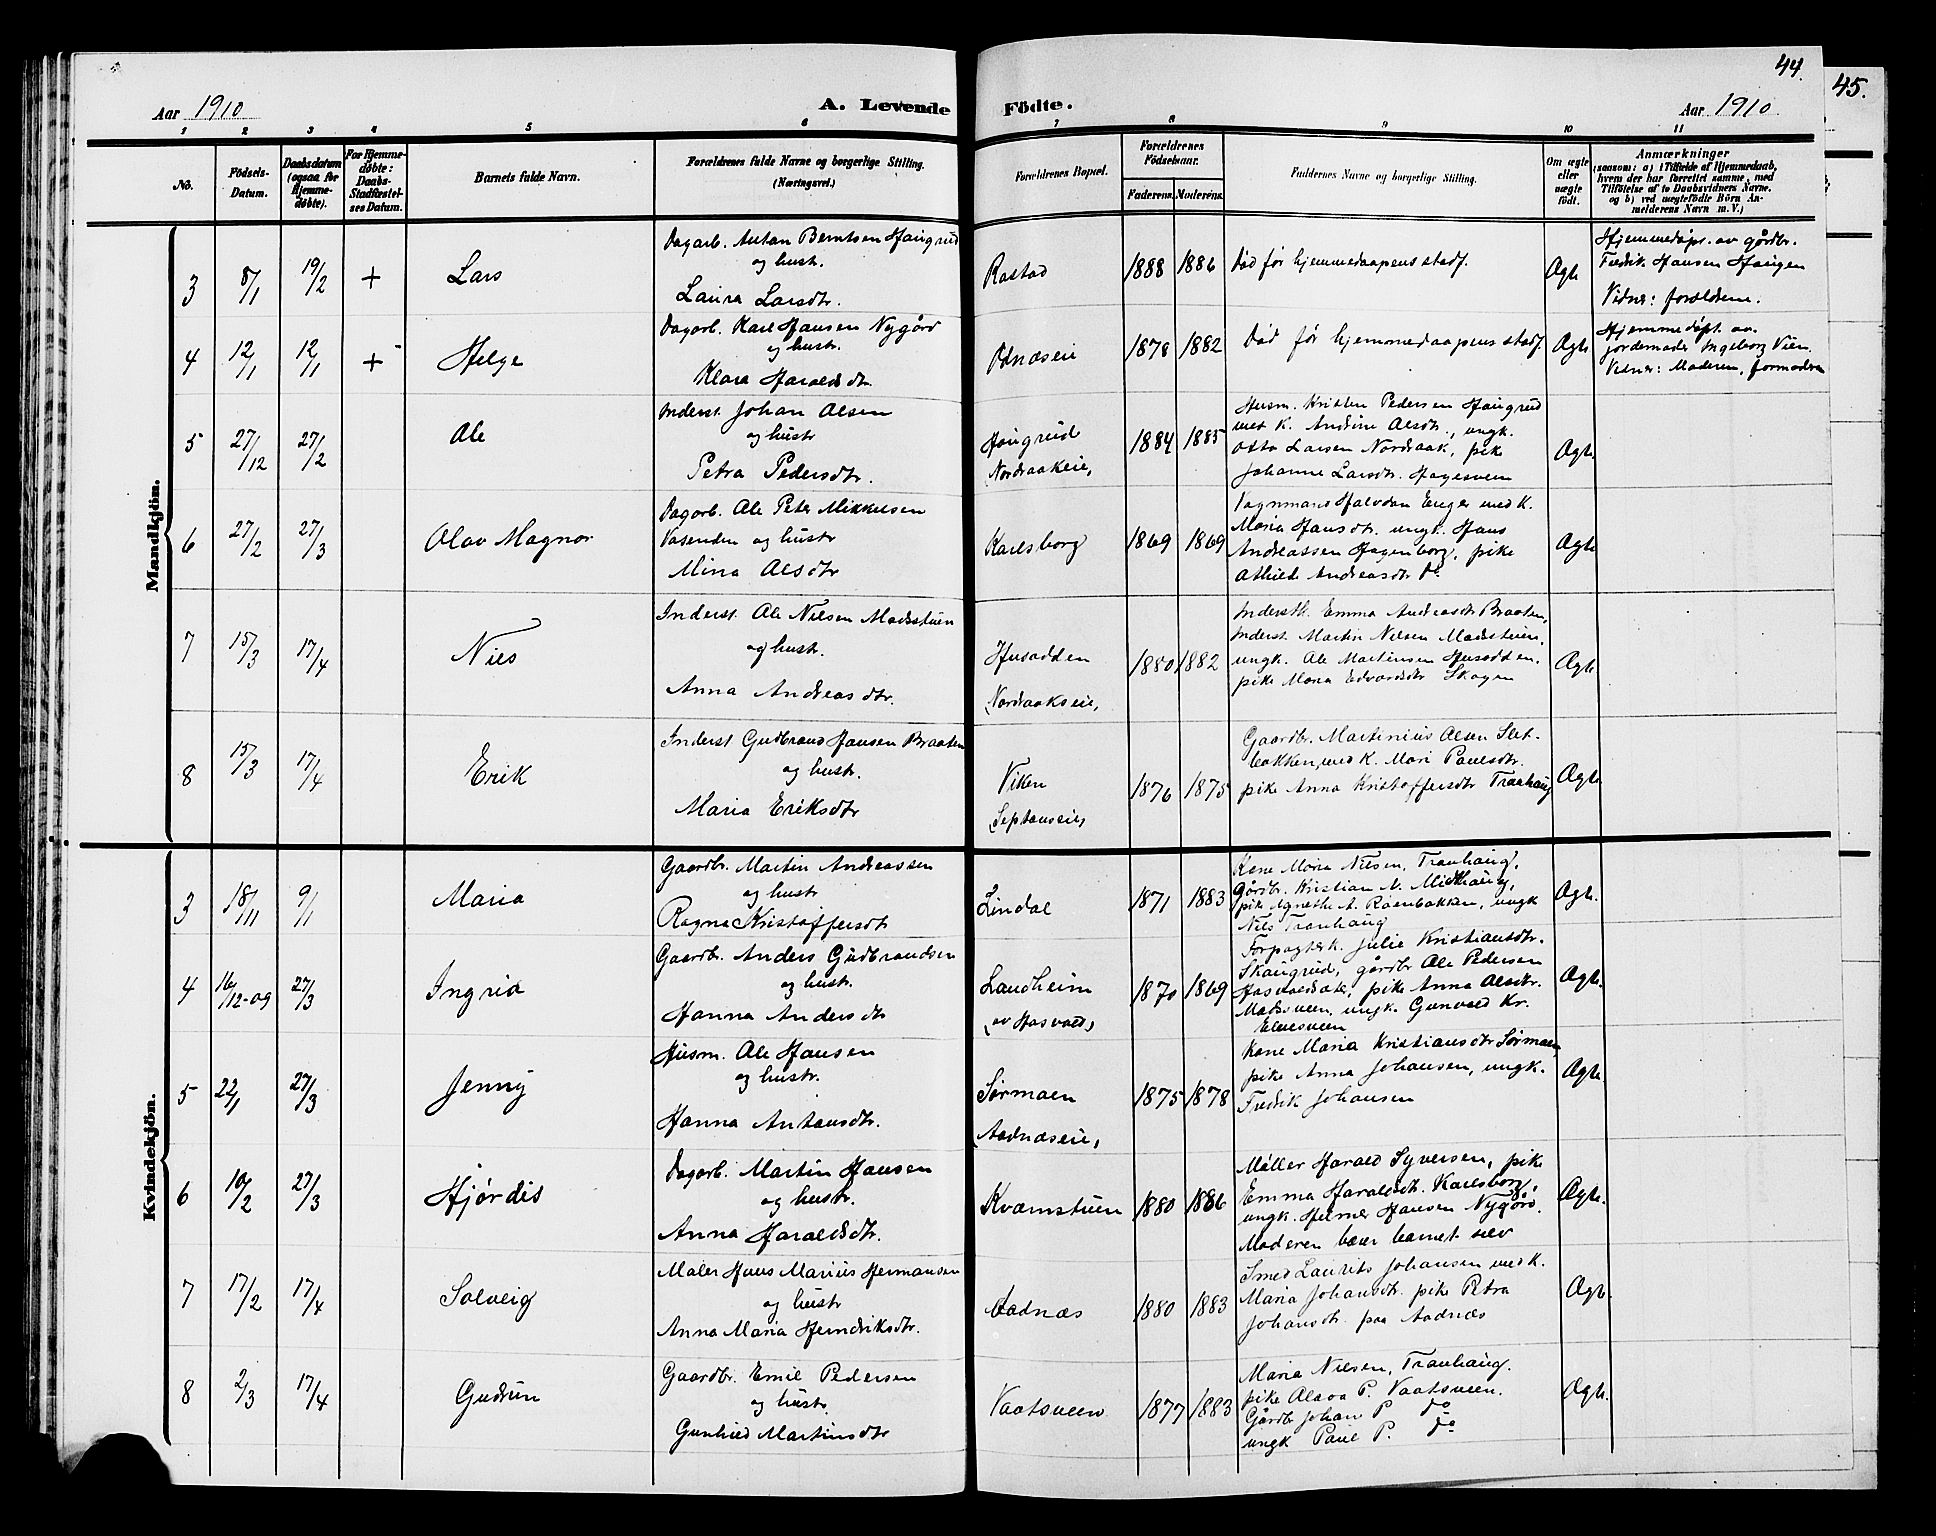 44.
45.
Aar 1910
A. Levende Födte.
Aar 1910.
1 2 3 4 5 6 7 8 9 10 11
No.
Födsels-
Datum.
Daabsdatum
(ogsaa for
Hjemme-
döbte).
For Hjemme-
döbte:
Daabs-
Stadfæstel-
ses Datum.
Barnets fulde Navn.
Forældrenes fulde Navne og borgerlige Stilling.
(Næringsvei.)
Forældrenes Bopæl.
Forældrenes
Födselsaar.
Faderens. Moderens.
Faddernes Navne og borgerlige Stilling.
Om ægte
eller
uægte
födt.
Anmærkninger
(saasom: a) i Tilfælde af Hjemmedaab,
hvem der har forrettet samme, med
Tilföielse af to Daabsvidners Navne.
og b) ved uægtefödte Börn An-
melderens Navn m. V.)
Mandkjön.
3 8/1 19/2 + Lars
Dagarb. Anton Berntsen Haugrud
og hust.
Laura Larsdtr.
Rastad 1888 1886
Død før hjemmedaapens stadf.
Ægte
Hjemmedøpt. av gårdbr.
Fredrik Hansen Haugen
Vidner: forældrene.
4 12/1 12/1 + Helge
Dagarb. Karl Hansen Nygård
og hustr.
Klara Haraldsdtr.
Odnæseie 1878 1882
Død før hjemmedaapens stadf.
Ægte
Hjemmedøpt. av
jordemoder Ingeborg Vien.
Vidner: Moderen, formodren
5 27/12 27/2 Ole
Inderst. Johan Olsen
og hustr
Petra Pedersdtr.
Haugrud
Nordraakeie, 1884 1885
Husm. Kristen Pedersen Haugrud
med K. Andine Olsdtr., ungk.
Otto Larsen Nordraak, pike
Johanne Larsdtr. Hagesveen
Ægte
6 27/2 27/3 Olav Magnor
Dagarb. Ole Peter Mikkelsen
Vasenden og hustr
Mina Olsdtr
Karlsborg 1869 1869
Vognmand Halvdan Enger med K.
Maria Hansdtr. ungk. Hans
Andreassen Hagenborg, pike
Othilde Andreasdtr do
Ægte
7 15/3 17/4 Nils
Inderst. Ole Nilsen Madsstuen
og hustr.
Anna Andreasdtr.
Husodden
Nordraakseie, 1880 1882
Inderstk. Emma Andreasdtr Braaten,
Inderst. Martin Nielsen Madsstuen.
ungk. Ole Martinsen Husodden.
pike Maria Edvardsdtr Skogen
Ægte
8 15/3 17/4 Erik
Inderst Gudbrand Hansen Braaten
og hustr.
Maria Eriksdtr
Viken
Septonseie, 1876 1875
Gaardbr. Martinius Olsen Slet-
bakken, med K. Mari Paulsdtr.
pike Anna Kristoffersdtr Tranhaug
Ægte
Kvindekjön.
3 18/11 9/1 Maria
Gaardbr. Martin Andreassen
og hustr
Ragna Kristoffersdtr
Lindal 1871 1883
Kone Maria Nilsen, Tranhaug,
gårdbr. Kristian N. Midthaug,
pike Agnethe A. Roenbakken, ungk
Nils Tranhaug
Ægte.
4 16/12-09 27/3 Ingrid
Gaardbr. Anders Gudbrandsen
og hustr.
Hanna Andersdtr
Landheim
av Hasvold, 1870 1869
Forpagterk. Julie Kristiansdtr.
Skaugrud, gårdbr Ole Pedersen
Hasvoldsæter, pike Anna Olsdtr.
Madsveen, ungk. Gunvald Kr.
Elvesveen
Ægte.
5 22/1 27/3 Jenny
Husm. Ole Hansen
og hustr.
Hanna Antonsdtr.
Sørmoen
Aadnæseie, 1875 1878
Kone Maria Kristiansdtr Sørmoen
pike Anna Johansen, ungk.
Fredrik Johansen
Ægte.
6 10/2 27/3 Hjørdis
Dagarb. Martin Hansen
og hustr.
Anna Haraldsdtr.
Kvæmstuen 1880 1886
Møller Harald Syversen, pike
Emma Haraldsdtr. Karlsborg,
ungk. Helmer Hansen Nygård.
Moderen bær barnet selv
Ægte.
7 17/2 17/4 Solveig
Maler Hans Marius Hermansen
og hustr
Anna Maria Hendriksdtr.
Aadnæs 1880 1883
Smed Laurits Johansen med K.
Maria Johansdtr. pike Petra
Johansdtr. paa Aadnæs
Ægte.
8 2/3 17/4 Gudrun
Gaardbr. Emil Pedersen
og hustr.
Gunhild Martinsdtr
Vaatsveen 1877 1883
Maria Nilsen, Tranhaug.
pike Olava P. Vaatsveen.
Gårdbr Johan P. do
ungk Paul P. do
Ægte.